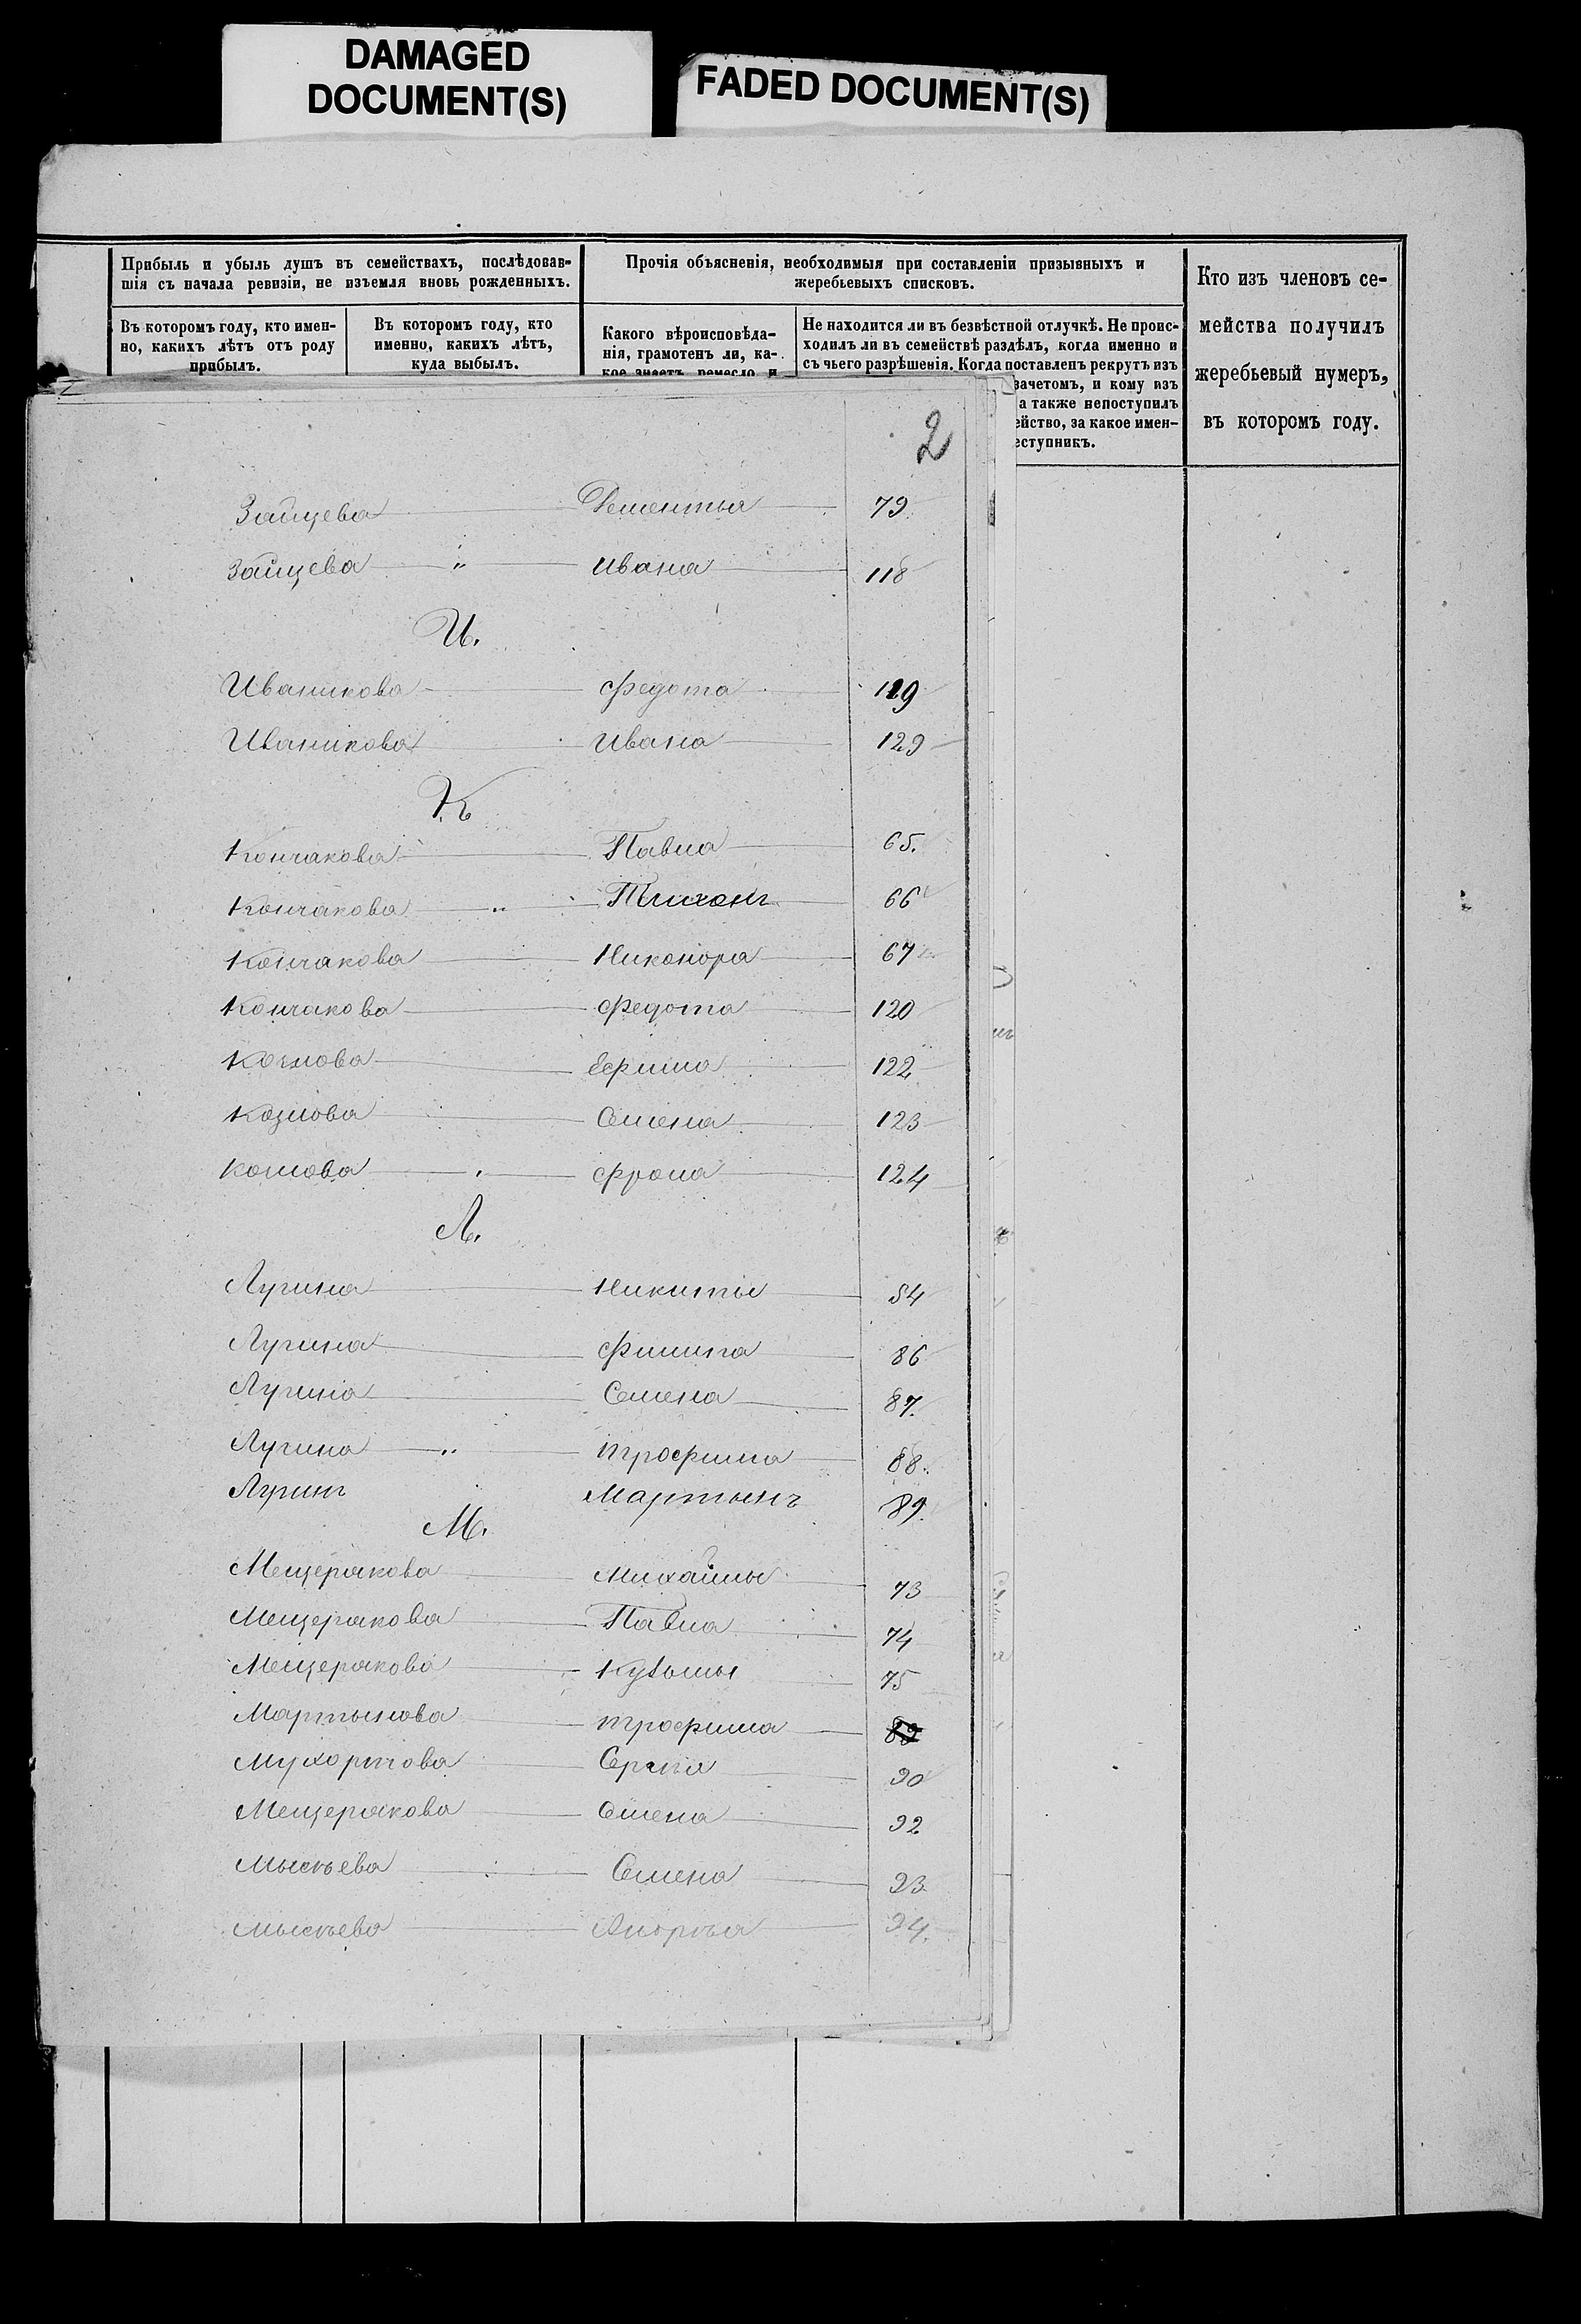 DAMAGED
DOCUMENT(S)
FADED DOCUMENT(S)
Прибыль и убыль душъ въ семействахъ, послѣдовав-
шія съ начала ревизіи, не изъемля вновь рожденныхъ.
Въ которомъ году, кто имен-
но, какихъ лѣтъ отъ роду
прибылъ.
Въ которомъ году, кто
именно, какихъ лѣтъ,
куда выбылъ.
Прочія объясненія, необходимыя при составленіи призывныхъ и
жеребьевыхъ списковъ.
Какого вѣроисповѣда-
нія, грамотенъ ли, ка-
кое знаетъ ремесло и
Не находится ли въ безвѣстной отлучкѣ. Не проис-
ходилъ ли въ семействѣ раздѣлъ, когда именно и
съ чьего разрѣшенія. Когда поставленъ рекрутъ изъ
зачетомъ, и кому изъ
а также непоступилъ
ейство, за какое имен-
еступникъ.
Кто изъ членовъ се-
мейства получилъ
жеребьевый нумеръ,
въ которомъ году.
2
Зайцева Дементья 79
Зайцева " Ивана 118
И.
Иваникова Федота 119
Иваникова Ивана 129
К
Кончакова Павла 65.
Кончакова " Тихонъ 66
Кончакова Никонора 67
Кончакова Федота 120
Козлова Ефима 122
Козлова Семена 123
Козлова Фрола 124
Л.
Лугина Никиты 54
Лугина Филипа 86
Лугина Семена 87.
Лугина " Трофима 88.
Лугинъ Мартынъ 89.
М.
Мещерякова Михайлы 73
Мещерякова Павла 74
Мещерякова Кузьмы 75
Мартынова Трофима 89
Мухортова Сергѣя 90
Мещерякова Семена 92
Мыскѣева Семена 93
Мыскѣева 94.